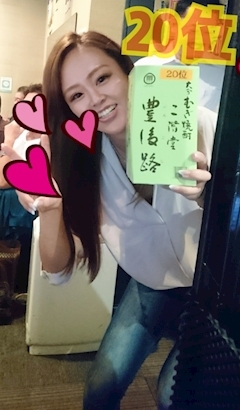 20位
20位
大分むぎ焼酎
二階堂
豊後路